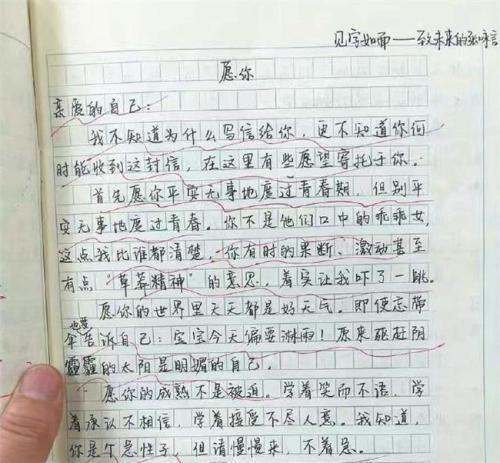 见字如面——致未来的张咏言
愿你
亲爱的自己：
我不知道为什么写信给你，更不知道你何
时能收到这封信，在这里有些愿望寄托于你。
首先愿你平安无事地度过青春期，但别平
安无事地度过青春。你不是他们口中的乖乖女，
这点我比谁都清楚。你有时的果断、激动甚至
有点“草莽精神”的意思，着实让我吓了一跳。
愿你的世界里天天都是好天气。即使忘带
也要
伞告诉自己：宝宝今天偏要淋雨！原来驱赶阴
霾的太阳是明媚的自己。
愿你的成熟不是被迫。学着笑而不语，学
着承认不相信，学着接受不尽人意。我知道，
你是个急性子，但请慢慢来，不着急。